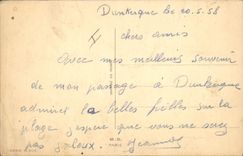 Dunkerque le 20.5.58
chers amis
Avec mes meilleurs souvenir
de mon passage à Dunkerque
admirer la belles filles sur la
plage j'espère que vous ne serez
pas jaloux. Jeannot
PARIS